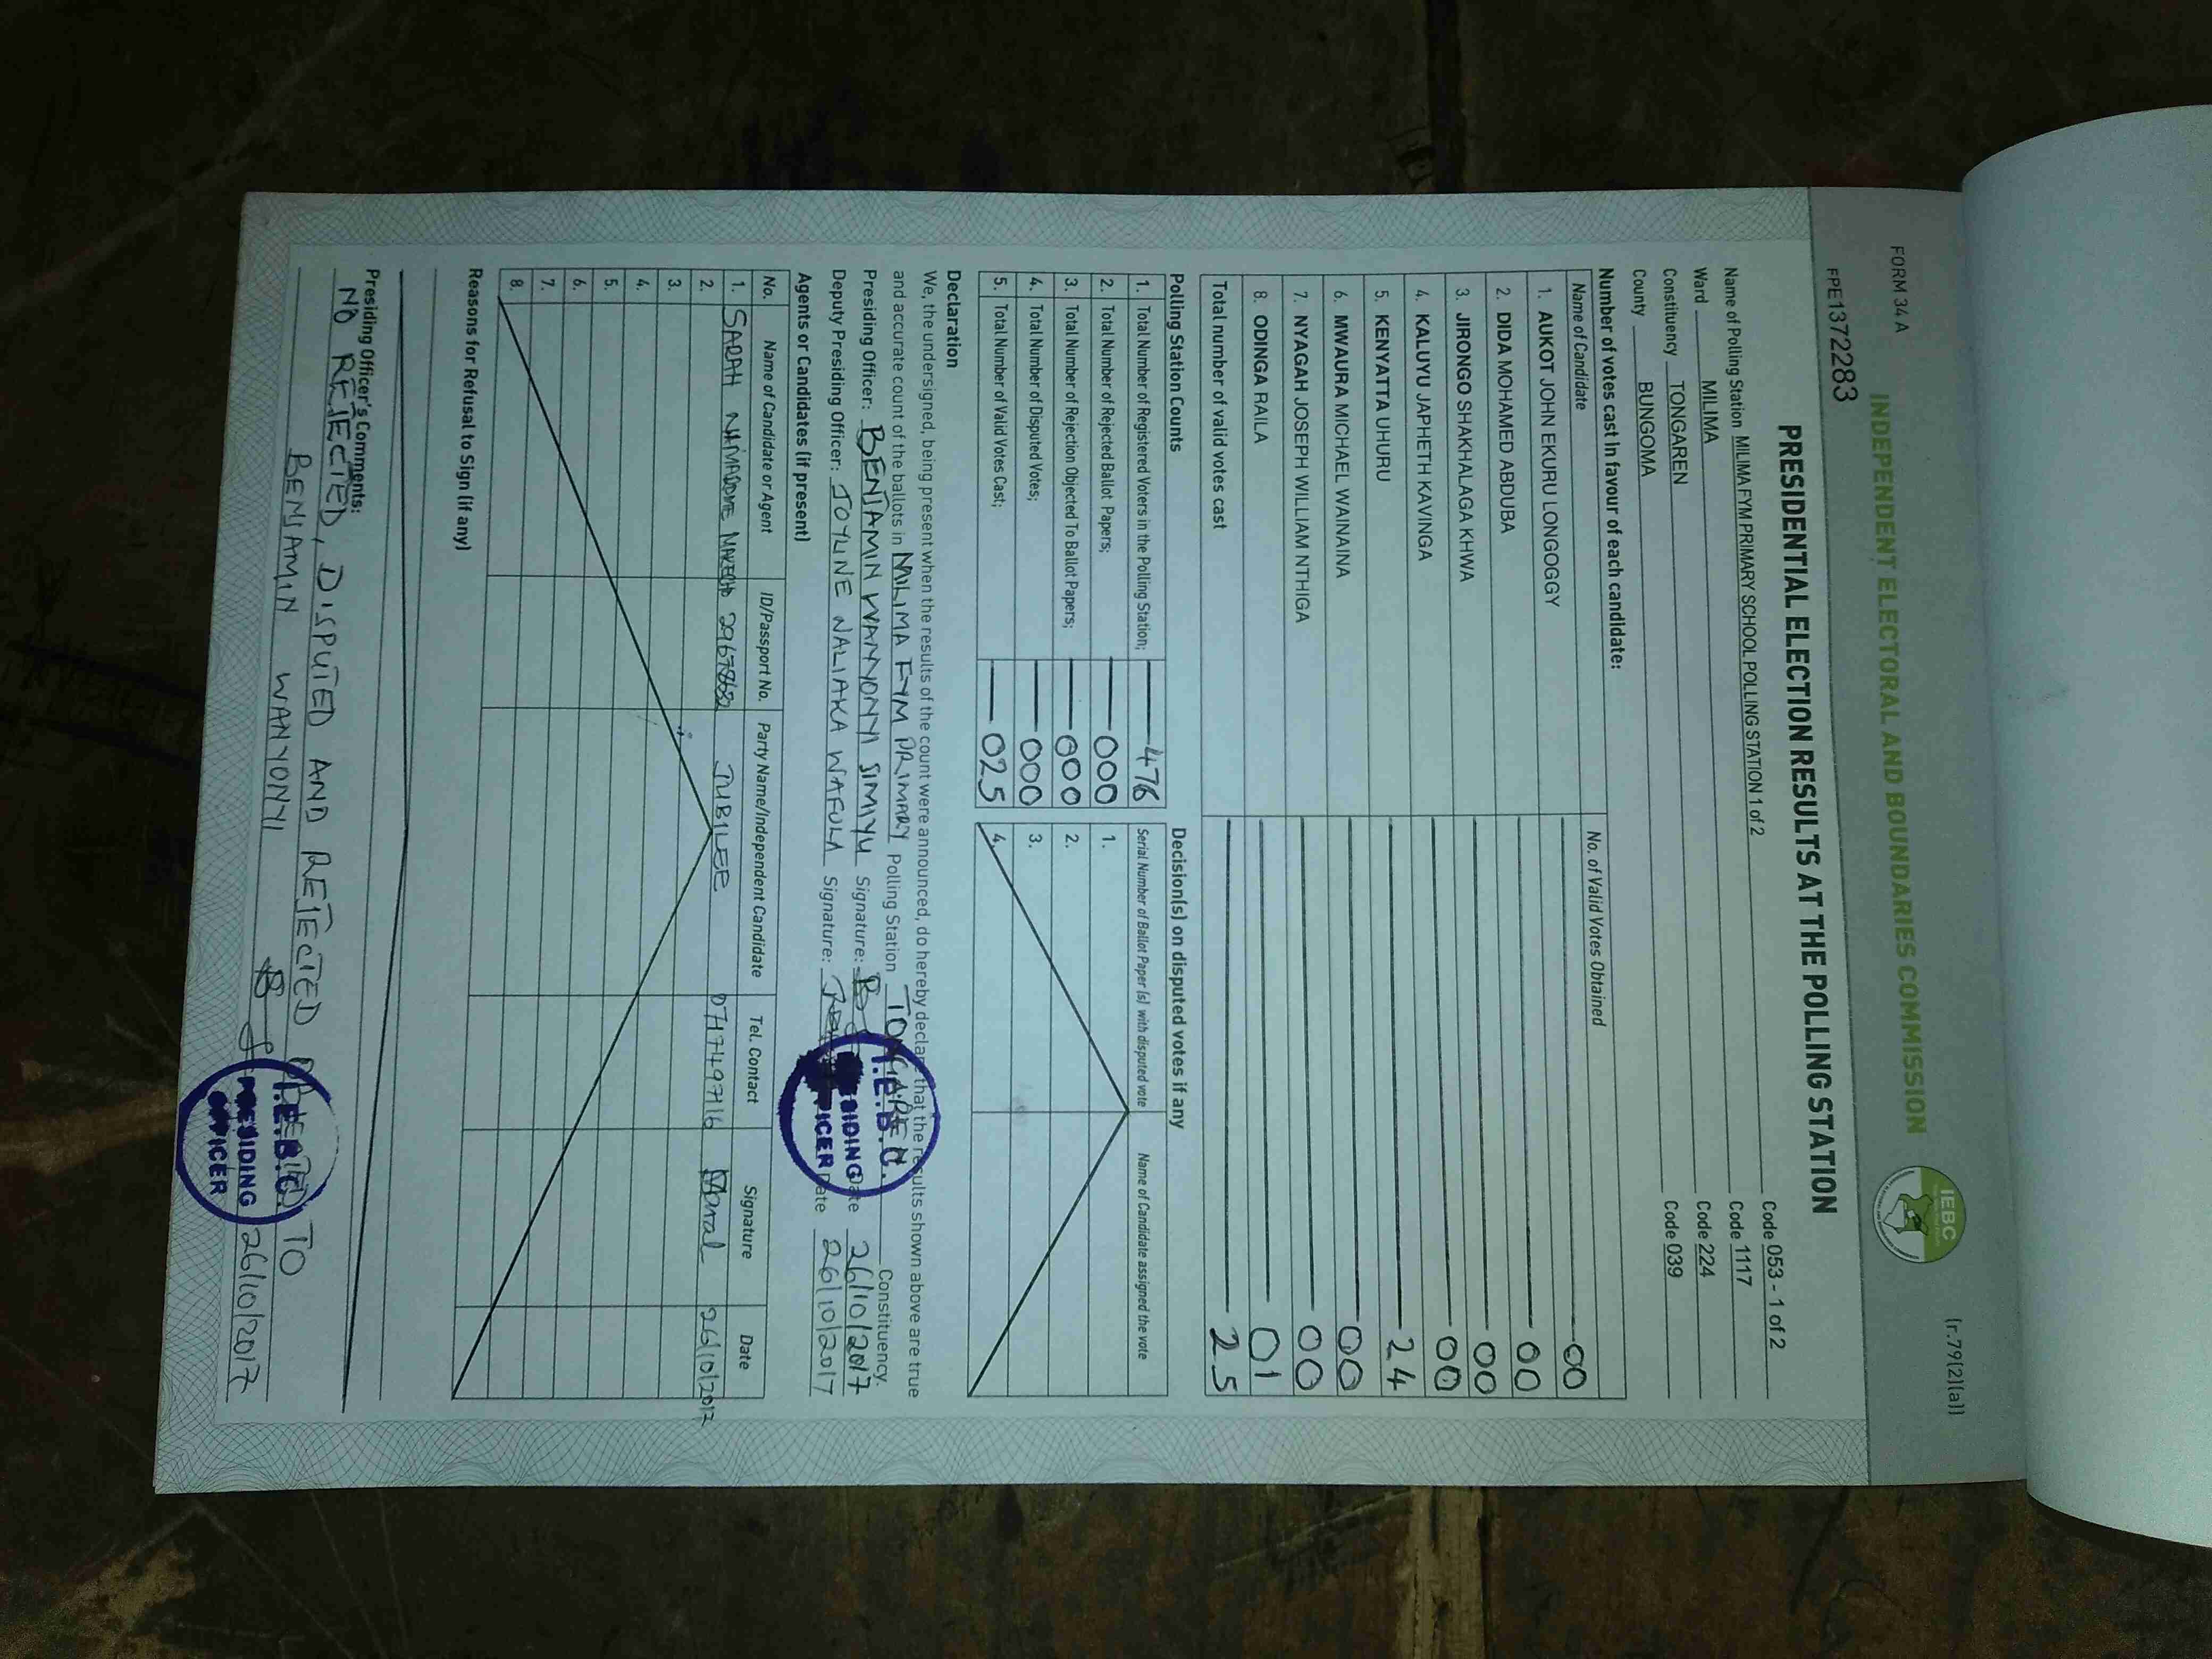 FORM 34 A
(r.79(2)(a))
INDEPENDENT ELECTORAL AND BOUNDARIES COMMISSION
IEBC
FPE1372283
PRESIDENTIAL ELECTION RESULTS AT THE POLLING STATION
Name of Polling Station MILIMA FYM PRIMARY SCHOOL POLLING STATION 1 of 2 Code 053 - 1 of 2
Ward MILIMA Code 1117
Constituency TONGAREN Code 224
County BUNGOMA Code 039
Number of votes cast in favour of each candidate:
Name of Candidate No. of Valid Votes Obtained
1. AUKOT JOHN EKURU LONGOGGY 00
2. DIDA MOHAMED ABDUBA 00
3. JIRONGO SHAKHALAGA KHWA 00
4. KALUYU JAPHETH KAVINGA 00
5. KENYATTA UHURU 24
6. MWAURA MICHAEL WAINAINA 00
7. NYAGAH JOSEPH WILLIAM NTHIGA 00
8. ODINGA RAILA 01
Total number of valid votes cast 25
Polling Station Counts
1. Total Number of Registered Voters in the Polling Station; 476
2. Total Number of Rejected Ballot Papers; 000
3. Total Number of Rejection Objected To Ballot Papers; 000
4. Total Number of Disputed Votes; 000
5. Total Number of Valid Votes Cast; 025
Decision(s) on disputed votes if any
Serial Number of Ballot Paper (s) with disputed vote Name of Candidate assigned the vote
1.
2.
3.
4.
Declaration
We, the undersigned, being present when the results of the count were announced, do hereby declare that the results shown above are true
and accurate count of the ballots in MILIMA FYM PRIMARY Polling Station TONGAREN Constituency.
Presiding Officer: BENJAMIN WANYONYI SIMIYU Signature: Date 26/10/2017
Deputy Presiding Officer: JOYLINE NALIAKA WAFULA Signature: Date 26/10/2017
I.E.B.C. PRESIDING OFFICER
Agents or Candidates (if present)
No. Name of Candidate or Agent ID/Passport No. Party Name/Independent Candidate Tel. Contact Signature Date
1. SARAH JUBILEE 0717497716 26/10/2017
2.
3.
4.
5.
6.
7.
8.
Reasons for Refusal to Sign (if any)
Presiding Officer's Comments:
NO REJECTED, DISPUTED AND REJECTED TO
BENJAMIN WANYONYI 26/10/2017
I.E.B.C. PRESIDING OFFICER